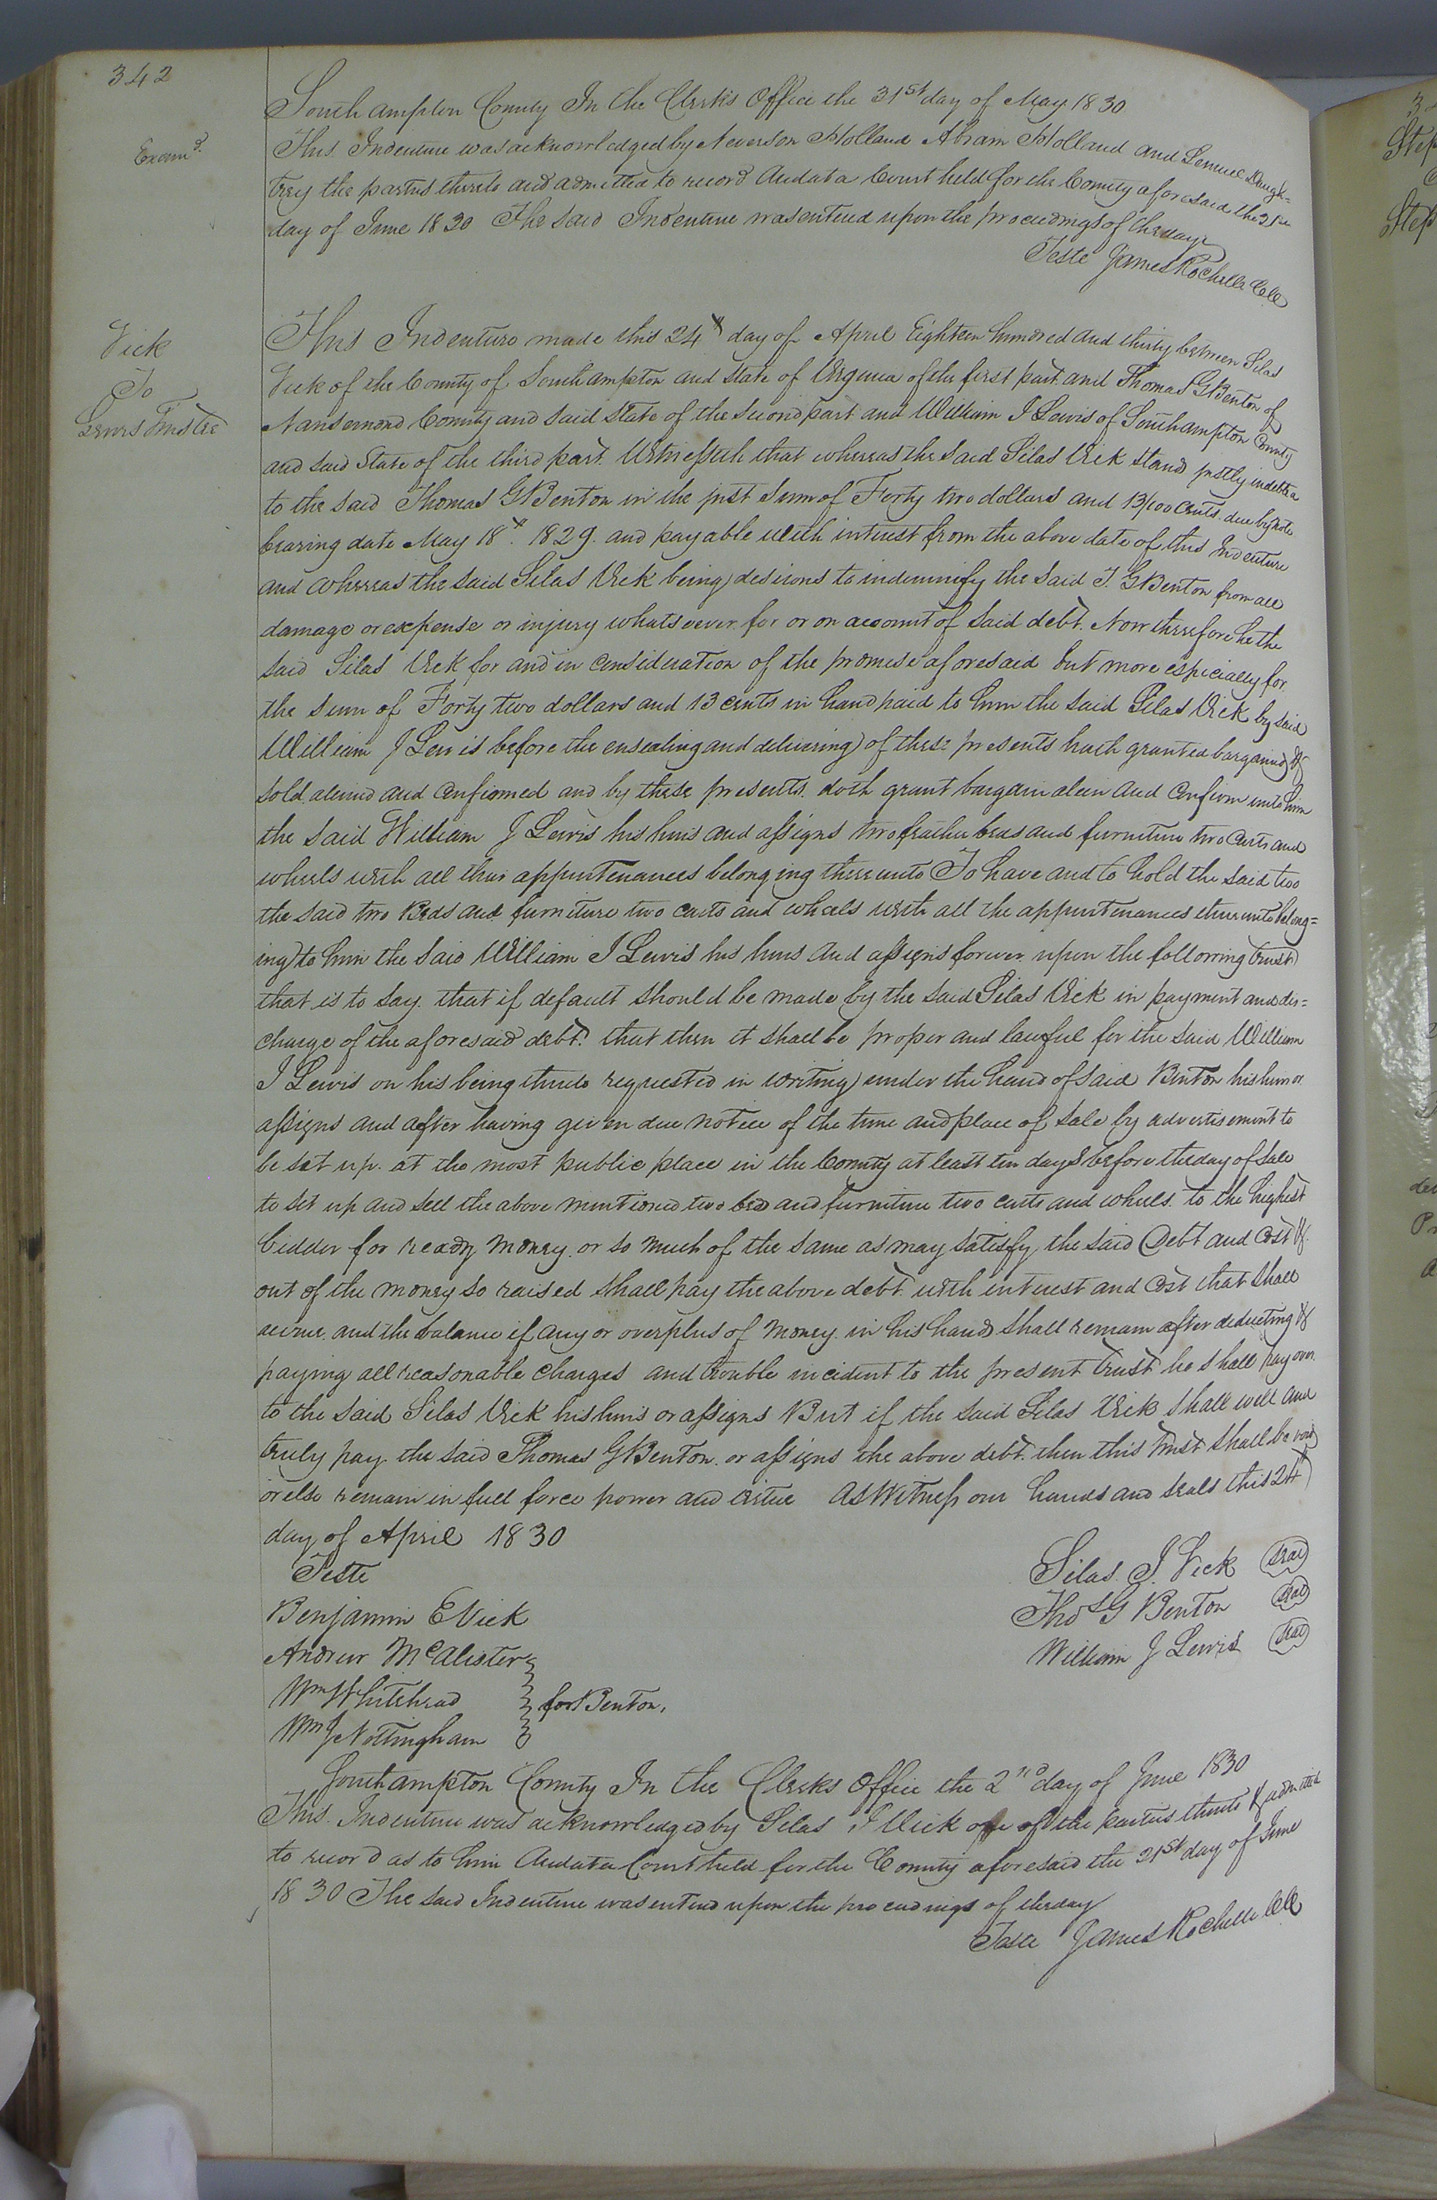 342
South ampton County In the Clerks Office the 31st day of May 1830
Exam d.
This Indenture was acknowledged by Neverson Holland Abram Holland and Lemuel Daugh=
trey the parties thereto and admitted to record And at a Court held for the County aforesaid the 21st
day of June 1830 The said Indenture was entered upon the proceedings of the day
Teste James Rochelle Clk
Vick
To
Lewis Trustee
This Indenture made this 24th day of April Eighteen hundred and thirty between Silas
Vick of the County of Southampton and State of Virginia of the first part and Thomas G Benton of
Nansemond County and said State of the second part and William J Lewis of Southampton County
and said State of the third part. Witnesseth that whereas the said Silas Vick stand justly indebted
to the said Thomas G Benton in the just sum of Forty two dollars and 13/100 Cents. due by note
bearing date May 18th. 1829. and payable with interest from the above date of this Indenture
and whereas the said Silas Vick being desirous to indemnify the said T. G Benton from all
damage or expense or injury whatsoever for or on account of said debt. Now therefore he the
said Silas Vick for and in consideration of the promise aforesaid but more especially for
the sum of Forty two dollars and 13 cents in hand paid to him the said Silas Vick by said
William J Lewis before the ensealing and delivering of these presents hath granted bargained &
sold, aliened and confirmed and by these presents. doth grant bargain alein and confirm unto him
the said William J Lewis his heirs and assigns two feather beds and furniture two carts and
wheels with all their appurtenances belonging thereunto To have and to hold the said two
the said two Beds and furniture two carts and wheels with all the appurtenances thereunto belong=
ing to him the said William J Lewis his heirs and assigns forever upon the following trust
that is to say. that if default should be made by the said Silas Vick in payment and dis=
charge of the aforesaid debt. that then it shall be proper and lawful for the said William
J Lewis on his being thereto requested in writing under the hand of said Benton his heirs or
assigns and after having given due notice of the time and place of sale by advertisement to
be set up. at the most public place in the County at least ten days before the day of sale
to set up and sell the above mentioned two bed and furniture two carts and wheels. to the highest
bidder for ready money. or so much of the same as may satisfy the said Debt and Cost &
out of the money so raised shall pay the above debt with interest and Cost that shall
accrue and the balance if any or overplus of money in his hands shall remain after deducting &
paying all reasonable charges and trouble incident to the present trust he shall pay over
to the said Silas Vick his heirs or assigns But if the said Silas Vick shall well and
truly pay the said Thomas G Benton. or assigns the above debt. then this trust shall be void
or else remain in full force power and virtue As Witness our hands and seals this 24th
day of April 1830
Teste
Silas. J. Vick Seal
Benjamin E Vick
Thos G Benton Seal
Andrew McAlister
William J Lewis Seal
Wm Whitehead
for Benton,
Wm J Nottingham
Southampton County In the Clerks Office the 2nd day of June 1830
This. Indenture was acknowledged by Silas J Vick one of the parties thereto & admitted
to record as to him And at a Court held for the County aforesaid the 21st day of June
1830 The said Indenture was entered upon the proceedings of the day
Teste James Rochelle Clk